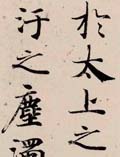 於太上之
汙之塵濁